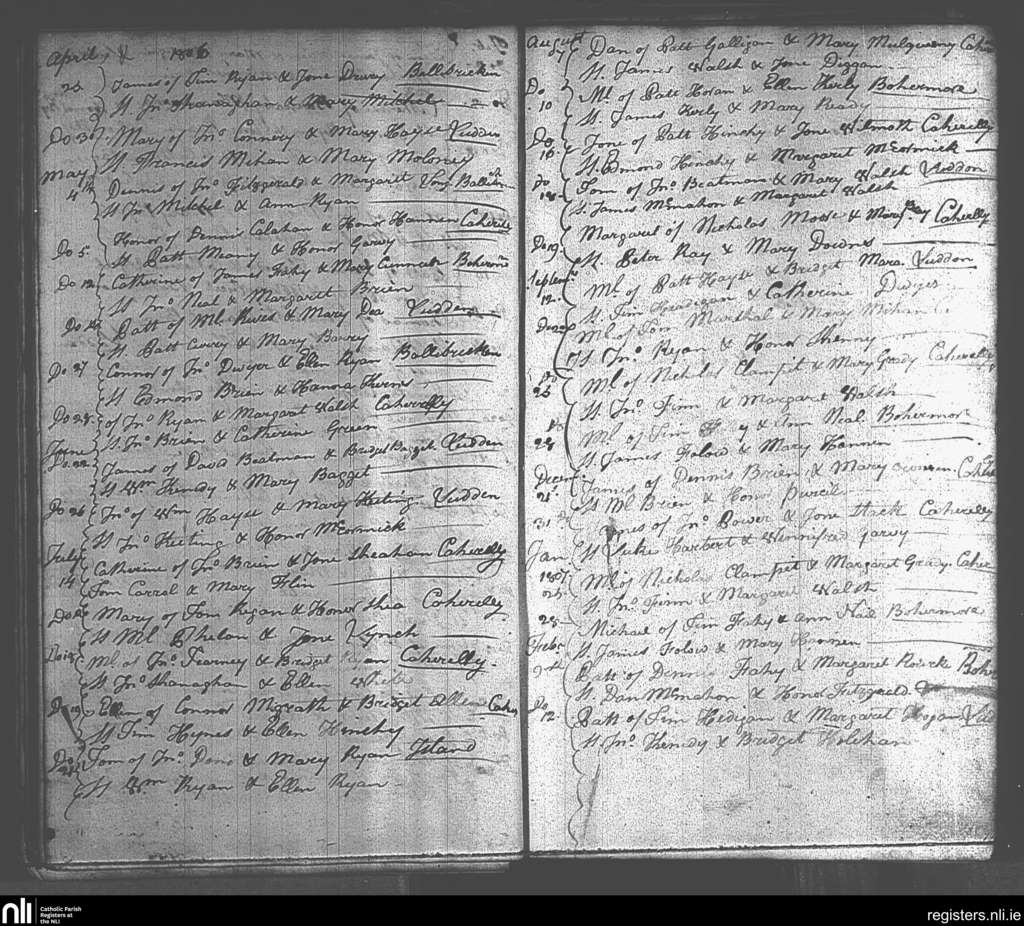 April 1806
23 James of Tim Ryan & Jone Drury Ballibrickin
St Jnº Shanaghan & Mary Mitchel
Do 30 Mary of Jnº Connery & Mary Hayse Luddin
St Francis Mehan & Mary Moloney
May 4th Dennis of Jnº Fitzgerald & Margaret
St Jnº Mitchel & Ann Ryan
Do 5 Honor of Dennis Calahan & Honor Hannen Caherelly
St Patt Meany & Honor Garvy
Do 12 Catherine of James Fahy & Mary Bohermo
St Jnº Neal & Margaret Brien
Do Patt of Ml. Rives & Mary Dea Luddin
St Patt Avery & Mary Barry
Do 27 Connor of Jnº Dwyer & Ellen Ryan Ballibricken
St Edmond Brien & Hanora
Do 28 of Jnº Ryan & Margaret Walsh Caherelly
St Jnº Brien & Catherine Green
June
Do 22 James of David Beatman & Bridget Bagget Luddin
St Wm Kenedy & Mary Bagget
Do 26 Jnº of Wm Hayse & Mary Heting Luddin
St Jnº Heting & Honor McCormick
July
14 Catherine of Jnº Brien & Jone Sheahan Caherelly
Tom Carrol & Mary Flin
Do Mary of Tom Regan & Honor Shea Caherelly
St Ml Phelan & Jone Lynch
Do 18 Ml of Jnº Tearney & Bridget Ryan Caherelly
St Jnº Shanaghan & Ellen
Do 19 Ellen of Connor Mgrath & Bridget Allen Caher
St Tim Heynes & Ellen Hinchy
Do Tom of Jnº Dono & Mary Ryan Island
St Wm Ryan & Ellen Ryan
August
Dan of Patt Galligan & Mary Mulqueeny Caher
St. James Walsh & Jone Diggan
Do 10 Ml. of Patt Horan & Ellen Kerly Bohermore
St. James Kerly & Mary Ready
Do 16 Jone of Patt Hinchy & Jone Wilmoth Caherelly
St. Edmond Hinchy & Margaret McCormick
Do 18 Tom of Jnº Beatman & Mary Walsh Luddon
St. James McMahon & Margaret Walsh
Margaret of Nicholas Moore & Mary Caherelly
Do 19 St. Peter Ray & Mary Downes
Septemr
12 Ml. of Patt Hayse & Bridget Mara Luddon
St. Tim Headigan & Catherine Dwyer
Do 20 Ml of Tom Marshal & Mary Mehan
St Jnº Ryan & Honor Shenny
Do 25 Ml of Nicholas Clampit & Mary Grady Caherelly
St Jnº Finn & Margaret Walsh
Do 28 Ml of Tim & Ann Neal Bohermore
St. James Folow & Mary Hannen
Decem
21st James of Dennis Brien & Mary
St Ml Brien & Honor Purcil
31st of Jnº Bower & Jone Stack Caherelly
St Luke Harbert & Winnifrad Garvy
Jan
1807 Ml of Nicholas Clampit & Margaret Grady Caher
St. Jnº Finn & Margaret Walsh
25 Michael of Tim Fahy & Ann Neal Bohermore
St. James Folow & Mary Hannen
Feb.
9th Patt of Dennis Frahey & Margaret Roirke Boher
St. Dan McMahon & Honor Fitzgerald
Do 12 Patt of Tim Hedigan & Margaret Hogan Lud
St Jnº Kenedy & Bridget Holehan
nli Catholic Parish
Registers at
the NLI
registers.nli.ie